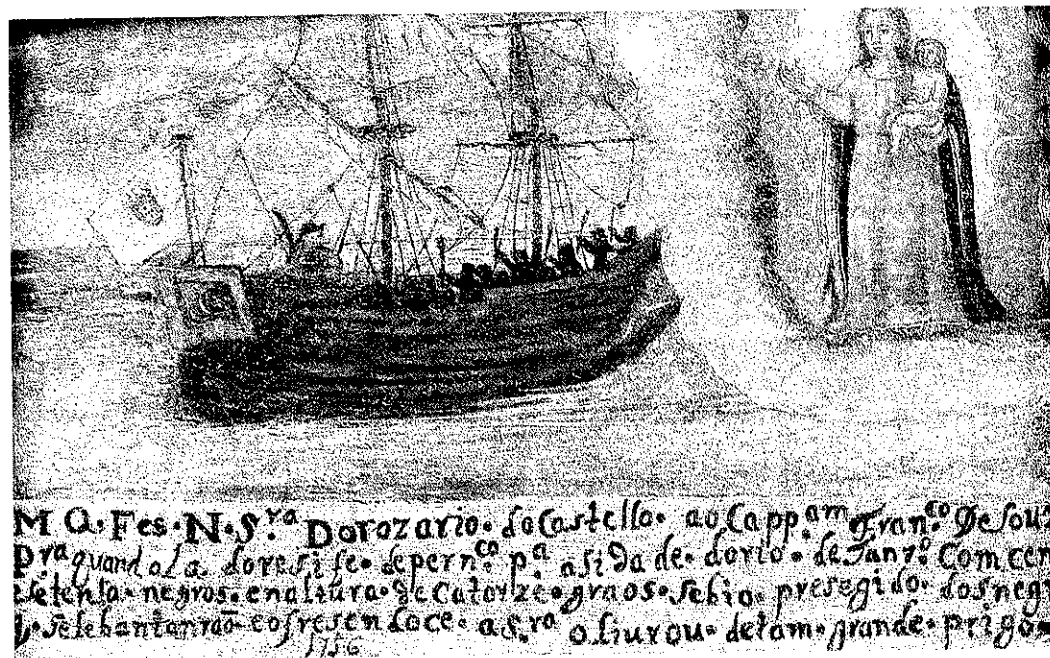 M Q. Fes. N. S.ra Dorozario. do Castello. ao Capp.am Fran.co De Souz
Pra quando la doresife. de pern.co p.a a sida de. dorio. de Janr.o Com cen
e setenta. negros. en altura. de Catorze. graos. se bio. presegido. dos neg
q. se lebantarão e ofresendoce. a S.ra o liurou. de tam. grande. prigo.
1756